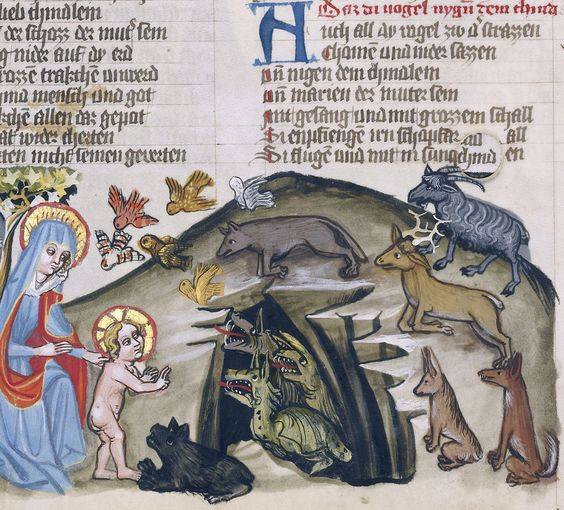 lieb chindlem
der schozz der mut͛ sein
g nider auf dy erd
rozze trakchen unwerd
hind mensch und got
kchen allen daz gepot
at wider cherten
ten nicht seinen geverten
Daz di vogel nygn dem chind
Auch all dy vogel zu d͛ strazzen
Chomen und nider sazzen
Un nigen dem chindlein
Un marien der muter sein
Mit gesang und mit grozzem schall
Si enpfienge irn schepfer all
Si flugen und mit in